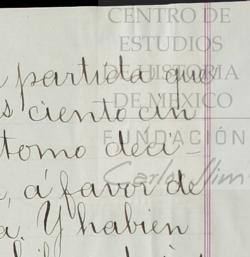 CENTRO DE
ESTUDIOS
DE HISTORIA
DE MÉXICO
FUNDACIÓN
Carlos Slim
partida que
ciento cin
tomo deci-
, á favor de
a. Y habien